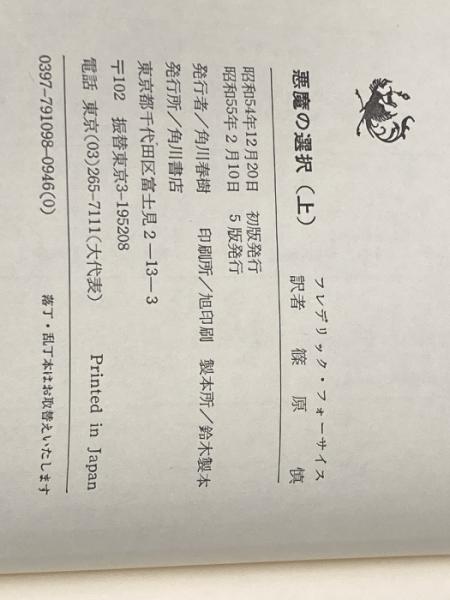 悪魔の選択（上）
フレデリック・フォーサイス
訳者　篠原　慎
昭和54年12月20日　初版発行
昭和55年2月10日　5版発行
発行者／角川春樹　印刷所／旭印刷　製本所／鈴木製本
発行所／角川書店
東京都千代田区富士見2－13－3
〒102　振替東京3-195208
電話　東京(03)265-7111(大代表)　Printed in Japan
0397-791098-0946(0)　落丁・乱丁本はお取替えいたします